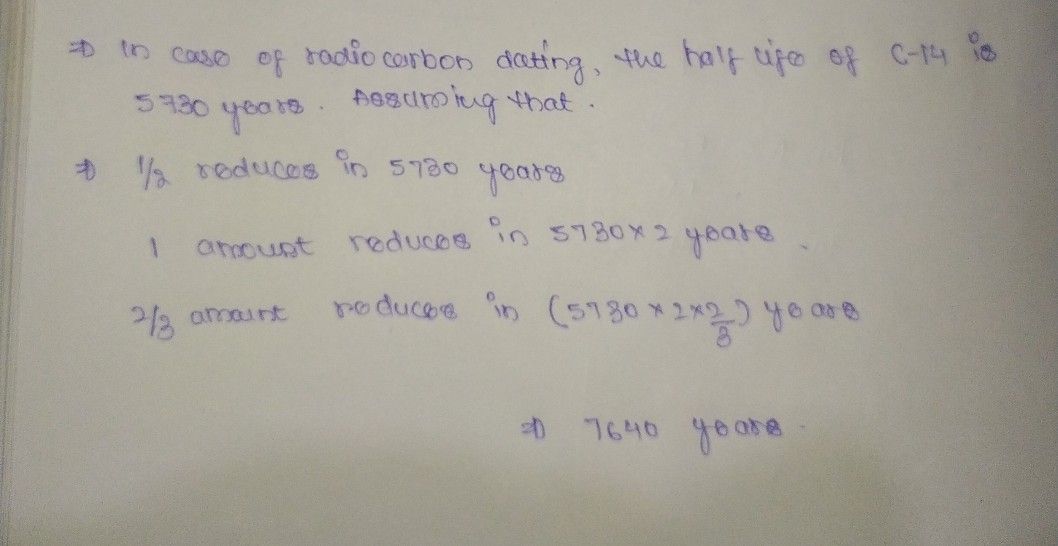 ⇒ In case of radiocarbon dating, the half life of C-14 is
5730 years. Assuming that.
⇒ 1/2 reduces in 5730 years
1 amount reduces in 5730 × 2 years.
2/3 amount reduces in (5730 × 2 × 2/3) years
⇒ 7640 years.